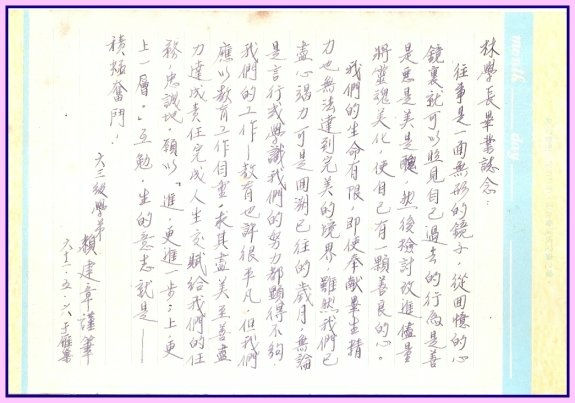 林學長畢業誌念：
往事是一面無形的鏡子，從回憶的心
鏡裏就可以照見自己過去的行為是善
是惡是美是醜，然後檢討改進儘量
將靈魂美化，使自己有一顆善良的心。
我們的生命有限，即使奉獻畢生精
力也無法達到完美的境界，雖然我們已
盡心竭力，可是回溯已往的歲月，無論
是言行或學識我們的努力都顯得不夠，
我們的工作—教育也許很平凡，但我們
應以教育工作自重，求其盡美至善盡
力達成責任完成人生交賦給我們的任
務，忠誠地，願以「進，更進一步；上，更
上一層。」互勉，生的意志就是——
積極奮鬥！
六三級學弟
賴建章謹筆
六十一、五、六于雁巢